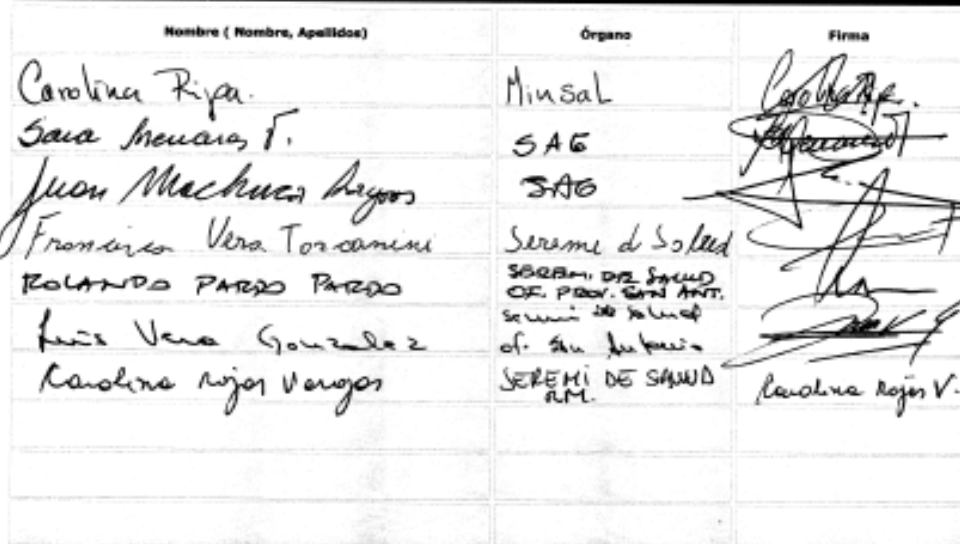 Nombre ( Nombre, Apellidos) Órgano Firma
Carolina Ripa. Minsal
Sara F. SAG
Juan Machuca SAG
Vera Toscanini Seremi d Salud
ROLANDO PARDO PARDO SEREMI. DE SALUD
OF. PROV. SAN ANT.
Luis Vera Gonzalez Seremi de Salud
of. San Antonio
Karolina Rojas Vargas SEREMI DE SALUD
RM.
Karolina Rojas V.